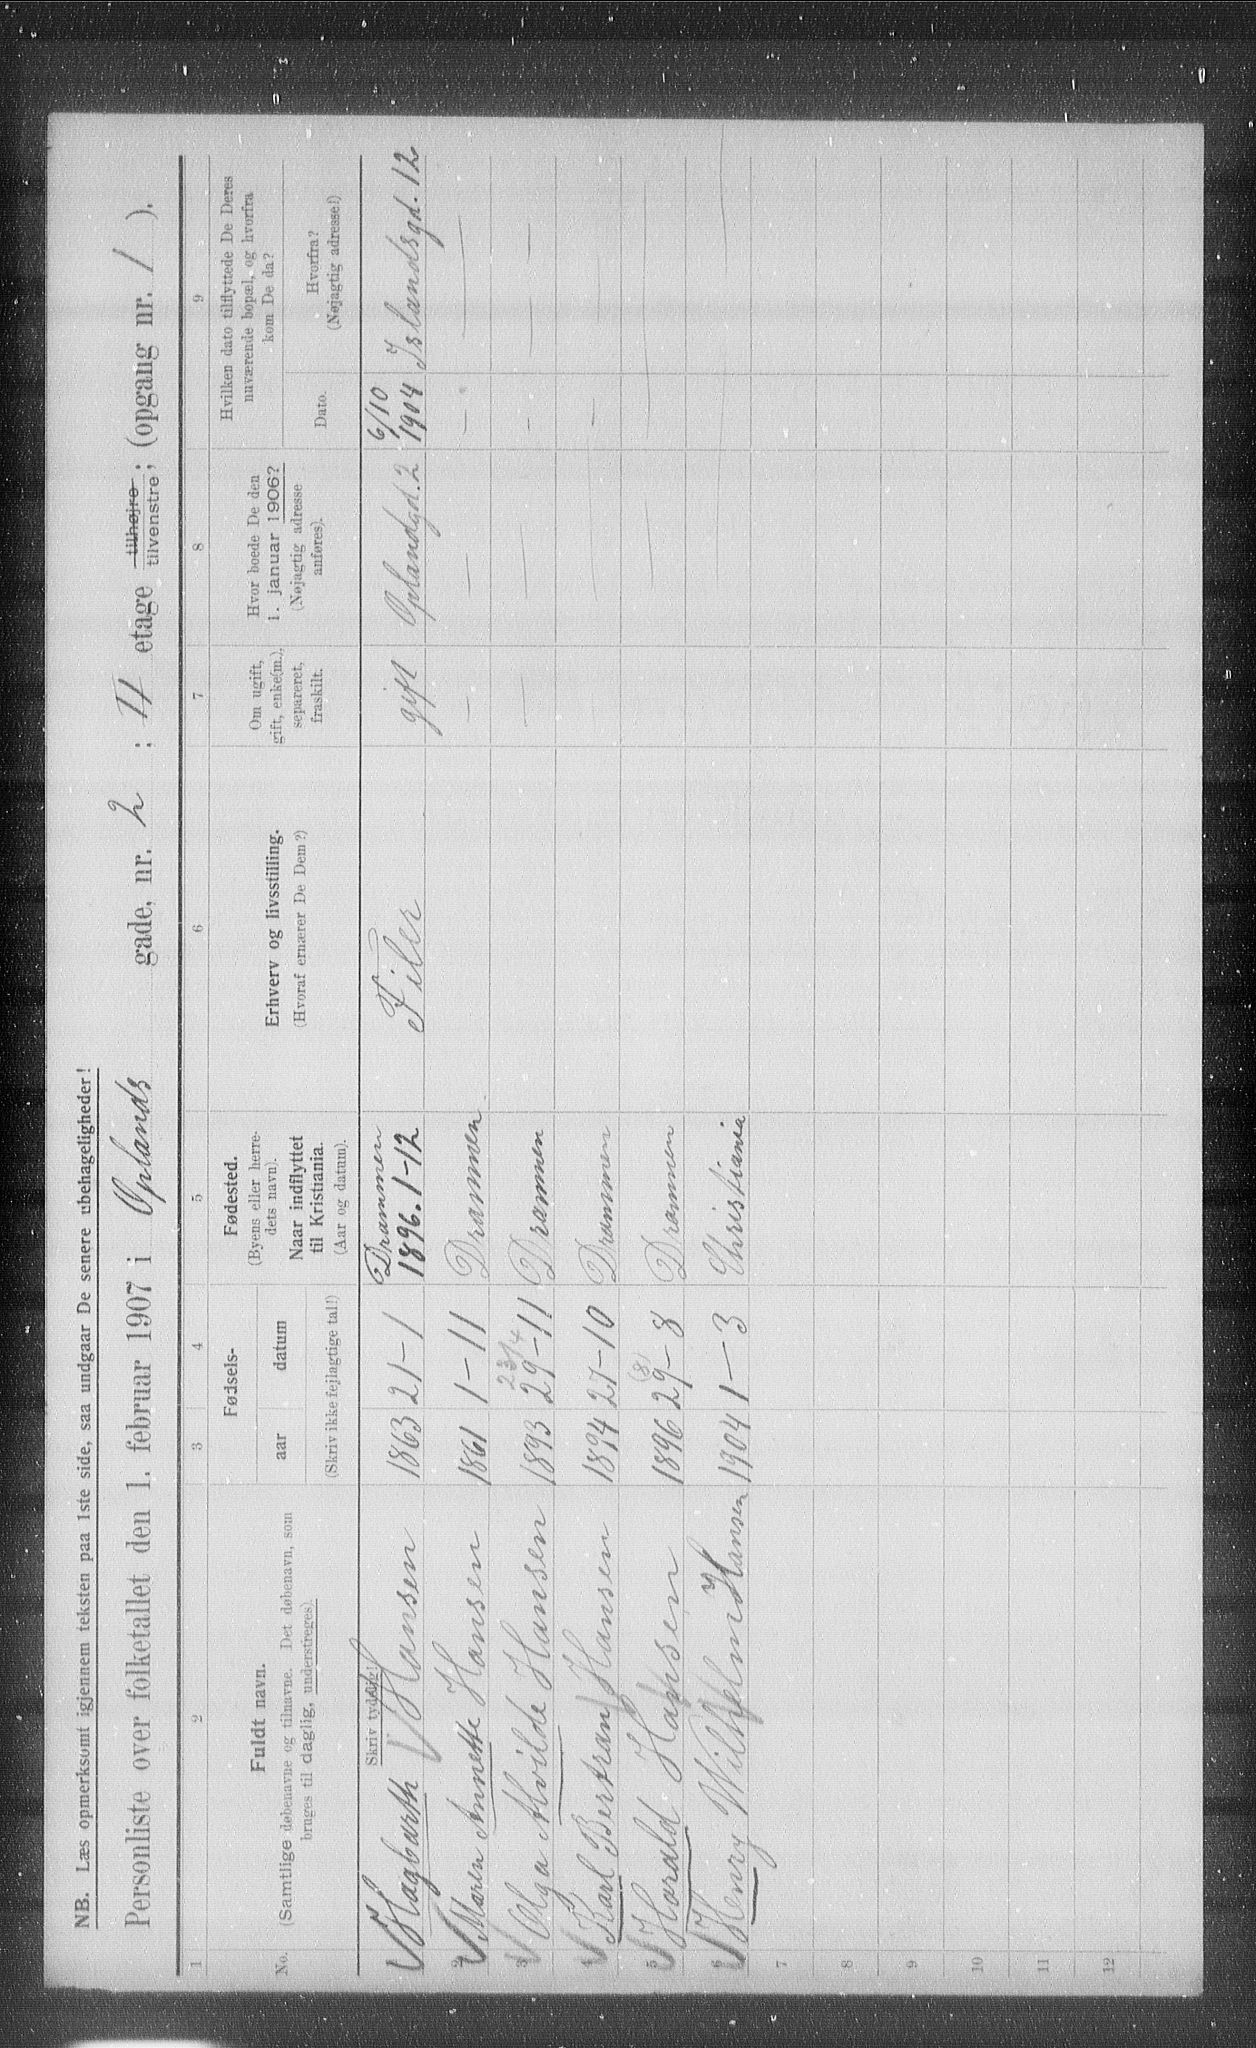 NB. Læs opmerksomt igjennem teksten paa 1ste side, saa undgaar De senere ubehageligheder!
Personliste over folketallet den 1. februar 1907 i Oplands gade, nr. 2 ; II etage tilhøjre tilvenstre; (opgang nr. 1 ).
1 2 3 4 5 6 7 8 9
No.
Fuldt navn.
(Samtlige døbenavne og tilnavne. Det døbenavn, som
bruges til daglig, understreges).
Skriv tydelig!
Fødsels-
aar datum
(Skriv ikke fejlagtige tal!)
Fødested.
(Byens eller herre-
dets navn).
Naar indflyttet
til Kristiania.
(Aar og datum).
Erhverv og livsstilling.
(Hvoraf ernærer De Dem?)
Om ugift,
gift, enke(m.),
separeret,
fraskilt.
Hvor boede De den
1. januar 1906?
(Nøjagtig adresse
anføres).
Hvilken dato tilflyttede De Deres
nuværende bopæl, og hvorfra
kom De da?
Dato.
Hvorfra?
(Nøjagtig adresse!)
Hagbarth Hansen 1863 21-1 Drammen 1896.1-12 Filer gift Oplandgd.2 6/10 1904 Islandsgd. 12
2 Maren Annette Hansen 1861 1-11 Drammen — — — —
3 Olga Alvilde Hansen 1893 23/4 29-11 Drammen — — — —
4 Karl Bertran Hansen 1894 27-10 Drammen — — —
5 Harald Hansen 1896 29-8 (8) Drammen — — —
6 Henry Wilhelm Hansen 1904 1-3 Christiania — —
7
8
9
10
11
12